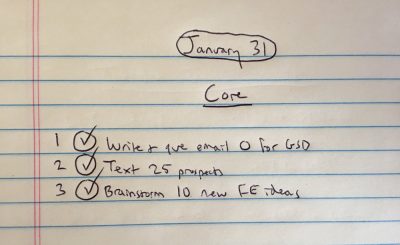 January 31
Core
1 Write + que email 0 for GSD
2 Text 25 prospects
3 Brainstorm 10 new FE ideas